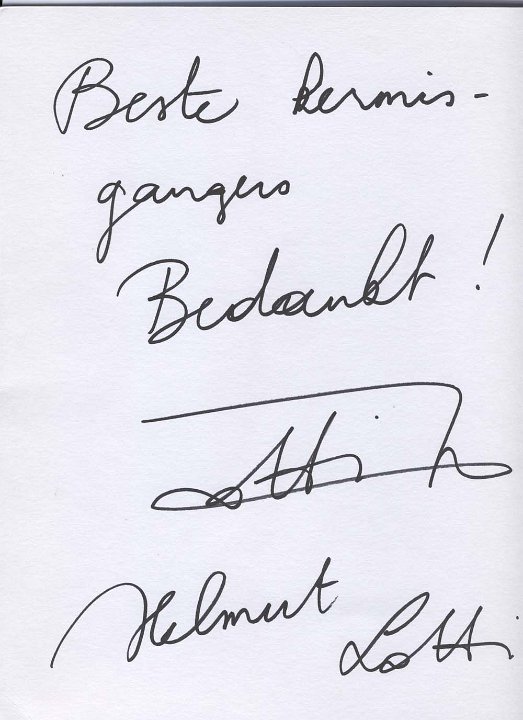 Beste kermis-
gangers
Bedankt !
Lotti
Helmut
Lotti